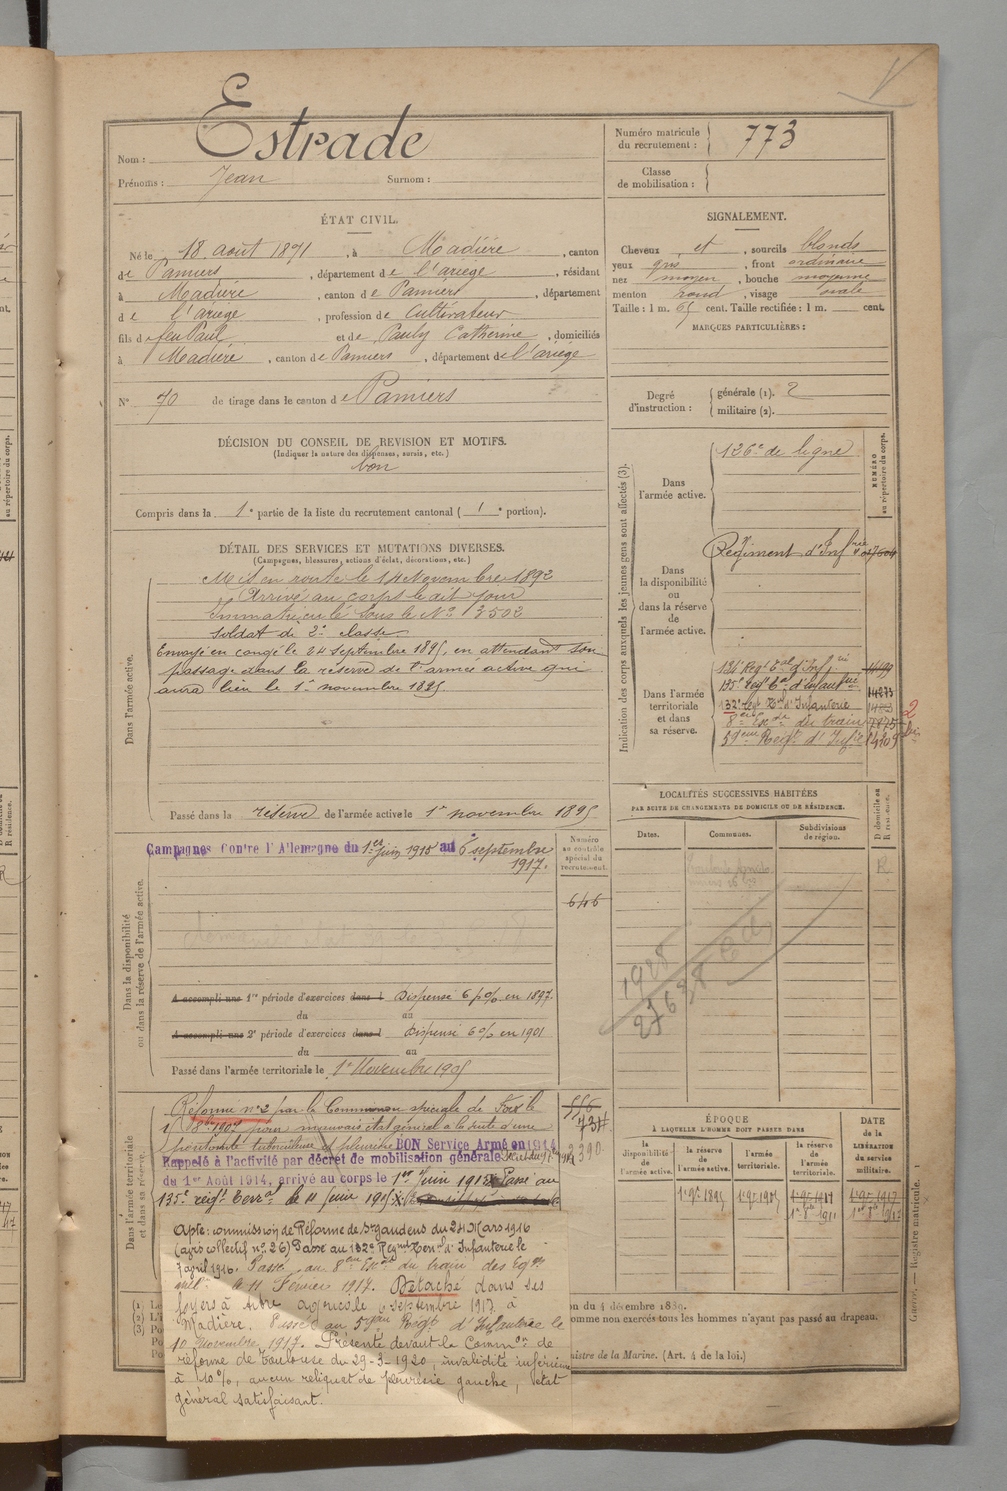 Nom : Estrade
Prénoms : Jean Surnom :
Numéro matricule du recrutement : 773
Classe de mobilisation :
ÉTAT CIVIL.
Né le 18 août 1871, à Madière, canton
de Pamiers, département de l'ariège, résidant
à Madière, canton de Pamiers, département
de l'ariège, profession de Cultivateur
fils de feu Paul et de Pauly Catherine, domiciliés
à Madière, canton de Pamiers, département de l'ariège
N° 70 de tirage dans le canton de Pamiers
SIGNALEMENT.
Cheveux et, sourcils blonds
yeux gris, front ordinaire
nez moyen, bouche moyenne
menton rond, visage ovale
Taille : 1 m. 65 cent. Taille rectifiée : 1 m. cent.
MARQUES PARTICULIÈRES :
Degré d'instruction : générale (1). 2
militaire (2).
DÉCISION DU CONSEIL DE REVISION ET MOTIFS.
(Indiquer la nature des dispenses, sursis, etc.)
bon
Compris dans la 1e partie de la liste du recrutement cantonal (1e portion).
DÉTAIL DES SERVICES ET MUTATIONS DIVERSES.
(Campagnes, blessures, actions d'éclat, décorations, etc.)
Dans l'armée active.
Mis en route le 14 Novembre 1892
Arrivé au corps le dit jour
Immatriculé sous le N° 3502
soldat de 2e classe
Envoyé en congé le 24 septembre 1895, en attendant son
passage dans la réserve de l'armée active qui
aura lieu le 1er novembre 1895
Passé dans la réserve de l'armée active le 1er novembre 1895
Indication des corps auxquels les jeunes gens sont affectés (3).
NUMÉRO au répertoire du corps.
Dans l'armée active.
126e de ligne
Dans la disponibilité ou dans la réserve de l'armée active.
Régiment d'Infrie
Dans l'armée territoriale et dans sa réserve.
134e Regt Eal d'Inf.rie
135e Regt Eal d'infantrie 14273
132e regt Eal d'Infanterie
8eme Exde du train 7875
59eme Regt d'Infie 14209
2 bis
LOCALITÉS SUCCESSIVES HABITÉES
PAR SUITE DE CHANGEMENTS DE DOMICILE OU DE RÉSIDENCE.
Dates. Communes. Subdivisions de région. D domicile ou R résidence.
R
1928
27638
Dans la disponibilité ou dans la réserve de l'armée active.
Numéro au contrôle spécial du recrutement.
Campagnes Contre l'Allemagne du 1er Juin 1915 au 6 septembre
1917.
646
A accompli une 1re période d'exercices dans l Dispensé 6 p% en 1897
du au
A accompli une 2e période d'exercices dans l Dispensé 6% en 1901
du au
Passé dans l'armée territoriale le 1er Novembre 1905
Dans l'armée territoriale et dans sa réserve.
Réformé n° 2 par la Commission spéciale de Foix le
8bre 1907 pour mauvais état général à la suite d'une
péritonite tuberculeuse et pleurésie BON Service Armé en 1914
Rappelé à l'activité par décret de mobilisation générale
du 1er Août 1914, arrivé au corps le 1er Juin 1915 Passé au
135e regt Terral le 11 juin 1915
556
734
2390
Apte : commission de Réforme de St gaudens du 24 Mars 1916
(avis collectif n° 26) Passé au 132e Regt Terral d'Infanterie le
7 avril 1916. Passé au 8eme Exde du train des Eqes
milres le 11 Février 1917. Détaché dans ses
foyers à titre agricole 6 septembre 1917 à
Madière. Passé au 59eme Regt d'Infanterie le
10 Novembre 1917. Présenté devant la Common de
réforme de Toulouse du 29-3-1920, invalidité inférieure
à 10%, aucun reliquat de pleurésie gauche, l'état
général satisfaisant.
ÉPOQUE
À LAQUELLE L'HOMME DOIT PASSER DANS
la disponibilité de l'armée active. la réserve de l'armée active. l'armée territoriale. la réserve de l'armée territoriale. DATE de la LIBÉRATION du service militaire.
1er 9bre 1895 1er 9bre 1905 1er 9bre 1911 1er 9bre 1917
1er 8bre 1911 1er 8bre 1917
(1)
(2)
(3)
on du 4 décembre 1889.
omme non exercés tous les hommes n'ayant pas passé au drapeau.
nistre de la Marine. (Art. 4 de la loi.)
Guerre. — Registre matricule. 1